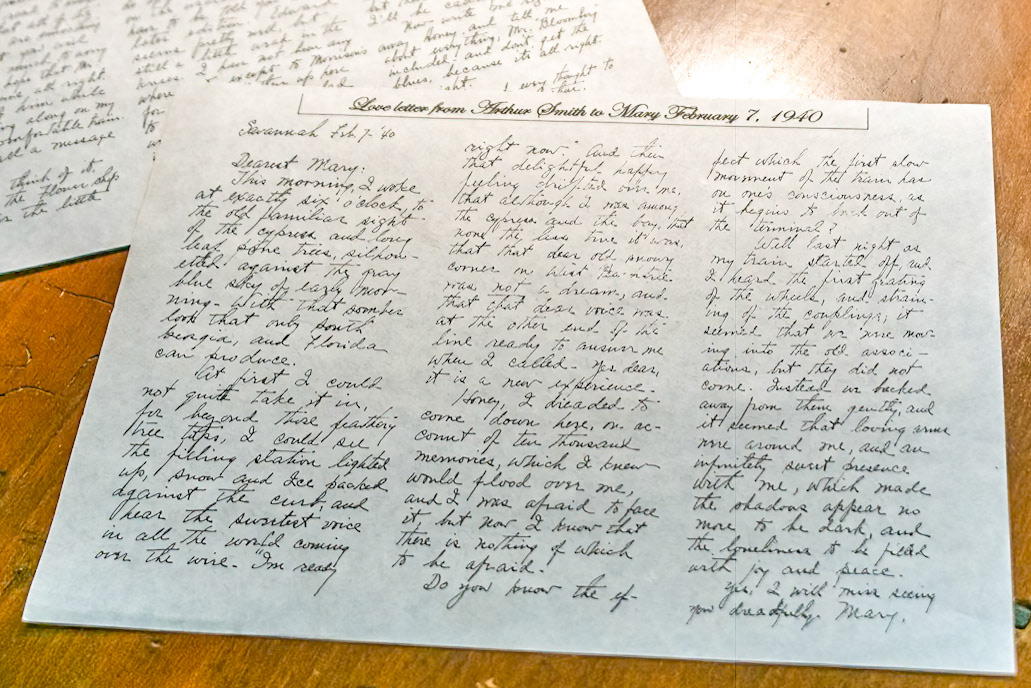 Love letter from Arthur Smith to Mary February 7, 1940
Savannah Feb. 7-'40
Dearest Mary:
This morning, I woke
at exactly six o'clock, to
the old familiar sight
of the cypress and long
leaf pine trees, silhou-
etted against the gray
blue sky of early mor-
ning- with that somber
look that only south
Georgia, and Florida
can produce.
At first I could
not quite take it in,
for beyond those feathery
tree tops, I could see
the filling station lighted
up, snow and Ice packed
against the curb, and
hear the sweetest voice
in all the world coming
over the wire- "I'm ready
right now." And then
that delightful happy
feeling drifted over me,
that although I was among
the cypress and the bay, that
none the less true it was,
that that dear old snowy
corner on West
was not a dream, and
that that dear voice was
at the other end of the
line ready to answer me
when I called- Yes dear,
it is a new experience-
Honey, I dreaded to
come down here, on ac-
count of ten thousand
memories, which I knew
would flood over me,
and I was afraid to face
it, but now I know that
there is nothing of which
to be afraid.
Do you know the ef-
fect which the first slow
movement of the train has
on one's consciousness, as
it begins to back out of
the terminal?
Well last night as
my train started off and
I heard the first grating
of the wheels, and strain-
ing of the couplings, it
seemed that we were mov-
ing into the old associ-
ations, but they did not
come. Instead we backed
away from them gently, and
it seemed that loving arms
were around me, and an
infinitely sweet presence
with me, which made
the shadows appear no
more to be dark, and
the loneliness to be filled
with joy and peace.
Yes, I will miss seeing
you dreadfully Mary.
all right
him while
along on my
comfortable ham.
a message
think of it.
the Flower Shop
in the little
pretty
still a
I
except to Morrison's
up here
where
now write
away Honey and tell me
about everything, Mr. Bloomberg
included- and don't get the
blues, because it's all right.
I very